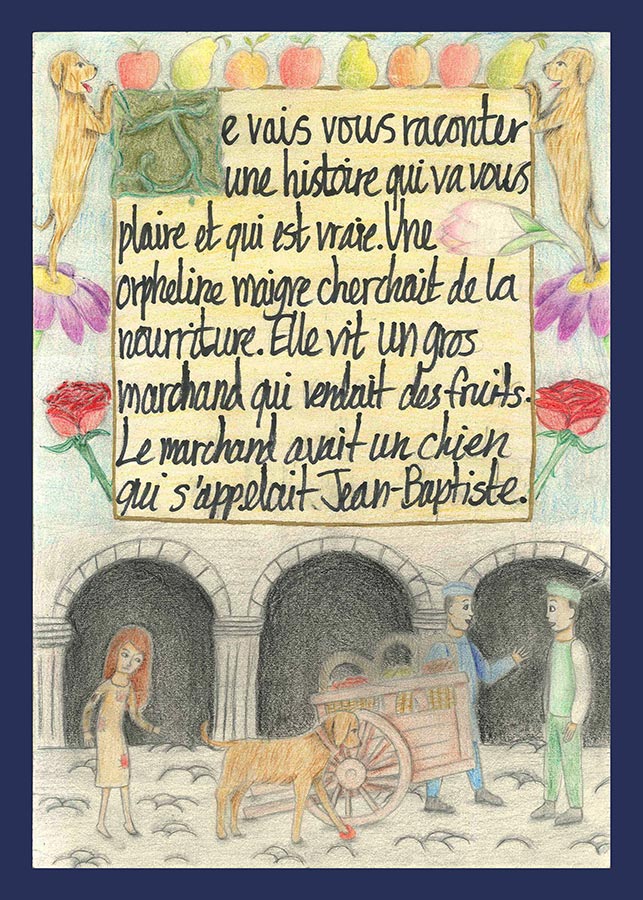 Je vais vous raconter
une histoire qui va vous
plaire et qui est vraie. Une
orpheline maigre cherchait de la
nourriture. Elle vit un gros
marchand qui vendait des fruits.
Le marchand avait un chien
qui s'appelait Jean-Baptiste.